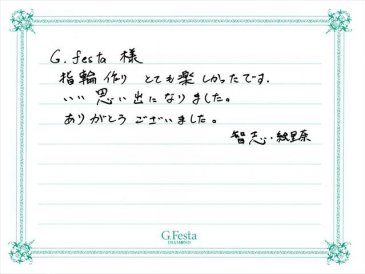 G.festa 様
指輪作り とても楽しかったです.
いい思い出になりました。
ありがとうございました。
智志・絵里奈
G.Festa
DIAMOND